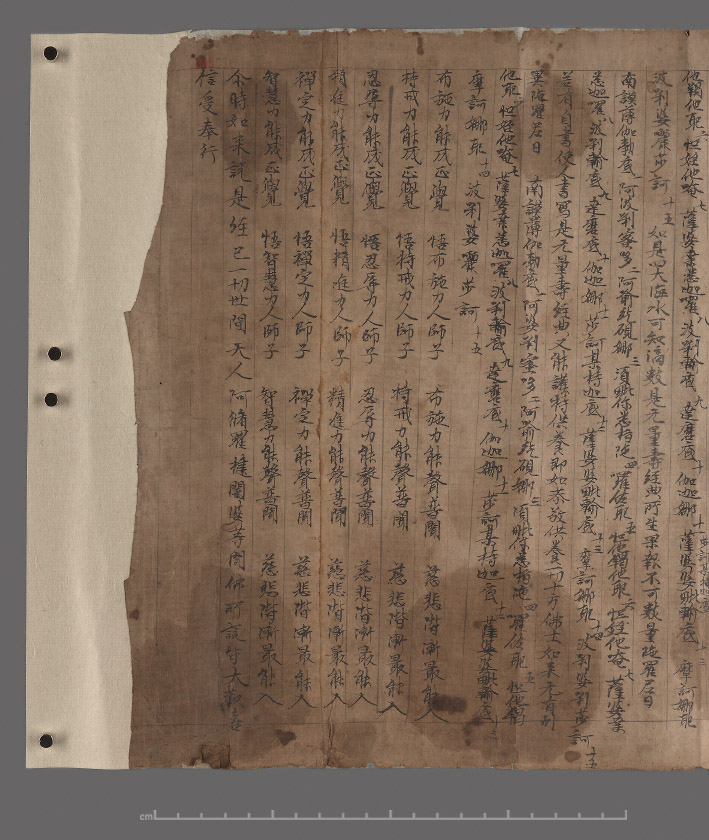 他羯他耶 六 怛姪他唵 七 薩婆桑悉迦囉 八 波唎輸底 九 達磨底 十 伽迦娜 十一 莎訶其持迦底 薩婆婆毗輸底 十三 摩訶娜耶
波唎婆麗莎訶 十五 如是四大海水可知滴數是无量壽經典所生果報不可數量陁羅尼曰
南謨薄伽勃底 阿波唎蜜多 二 阿喻紇硯娜 三 須毗你悉指陁 四 囉佐耶 五 怛他羯他耶 六 怛姪他唵 七 薩婆桑
悉迦囉 八 波唎輸底 九 達磨底 十 伽迦娜 十一 莎訶其持迦底 十二 薩婆婆毗輸底 十三 摩訶娜耶 十四 波唎婆唎莎訶 十五
若有自書使人書寫是无量壽經典又能護持供養即如恭敬供養一切十方佛土如來无有別
異陁羅尼曰 南謨薄伽勃底 阿波唎蜜多 二 阿喻紇硯娜 三 須毗你悉指陁 四 囉佐耶 五 怛他羯
他耶 怛姪他唵 七 薩婆桑悉迦囉 八 波唎輸底 九 達磨底 十 伽迦娜 十一 莎訶其持迦底 十二 薩婆婆毗輸底 十三
摩訶娜耶 十四 波唎婆麗莎訶 十五
布施力能成正覺 悟布施力人師子 布施力能聲普聞 慈悲階漸最能入
持戒力能成正覺 悟持戒力人師子 持戒力能聲普聞 慈悲階漸最能入
忍辱力能成正覺 悟忍辱力人師子 忍辱力能聲普聞 慈悲階漸最能入
精進力能成正覺 悟精進力人師子 精進力能聲普聞 慈悲階漸最能入
禪定力能成正覺 悟禪定力人師子 禪定力能聲普聞 慈悲階漸最能入
智慧力能成正覺 悟智慧力人師子 智慧力能聲普聞 慈悲階漸最能入
尒時如來說是經已一切世間天人阿脩羅揵闥婆等聞佛所說皆大歡喜
信受奉行
cm